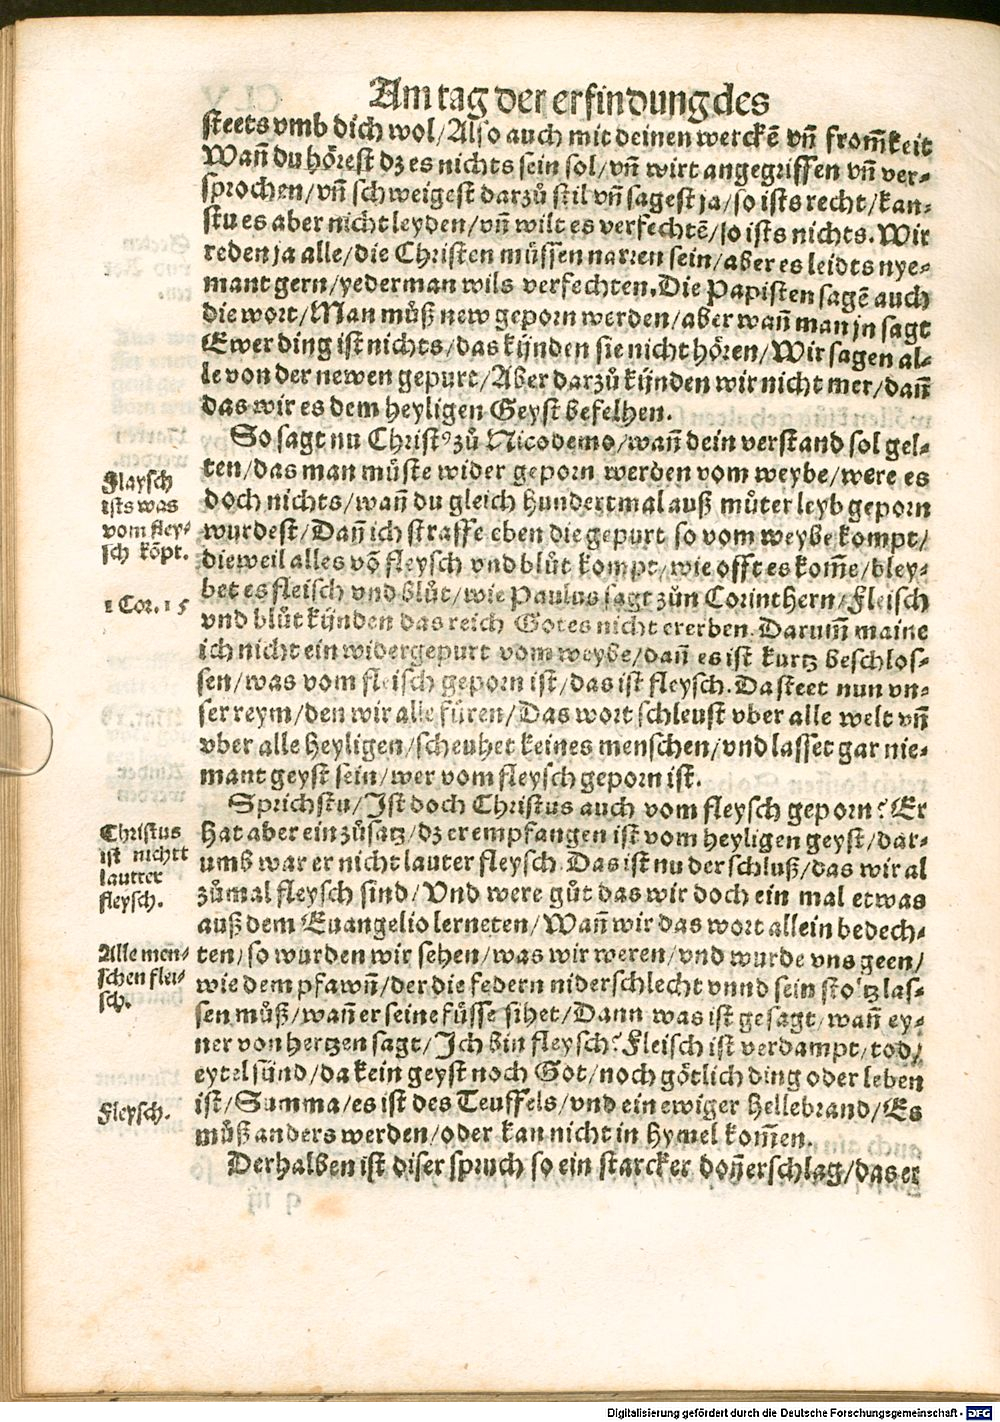 Am tag der erfindung des
steets vmb dich wol/Also auch mit deinen werckē vñ from̃keit
Wañ du hörest dz es nichts sein sol/vñ wirt angegriffen vñ ver-
sprochen/vñ schweigest darzů stil vñ sagest ja/so ists recht/kan-
stu es aber nicht leyden/vñ wilt es verfechtē/so ists nichts. Wir
reden ja alle/die Christen müssen narren sein/aber es leidts nye-
mant gern/yederman wils verfechten. Die Papisten sagē auch
die wort/Man můß new geporn werden/aber wañ man jn sagt
Ewer ding ist nichts/das kijnden sie nicht hören/Wir sagen al-
le von der newen gepurt/Aber darzů kijnden wir nicht mer/dañ
das wir es dem heyligen Geyst befelhen.
So sagt nu Christꝰ zů Nicodemo/wañ dein verstand sol gel-
ten/das man müste wider geporn werden vom weybe/were es
doch nichts/wañ du gleich hundertmal auß můter leyb geporn
wurdest/Dañ ich straffe eben die gepurt so vom weybe kompt/
dieweil alles võ fleysch vnd blůt kompt/wie offt es kom̃e/bley-
bet es fleisch vnd blůt/wie Paulus sagt zůn Corinthern/Fleisch
vnd blůt kijnden das reich Gotes nicht ererben. Darum̃ maine
ich nicht ein widergepurt vom weybe/dañ es ist kurtz beschlos-
sen/was vom fleisch geporn ist/das ist fleysch. Da steet nun vn-
ser reym/den wir alle füren/Das wort schleust vber alle welt vñ
vber alle heyligen/scheuhet keines menschen/vnd lasset gar nie-
mant geyst sein/wer vom fleysch geporn ist.
Sprichstu/Ist doch Christus auch vom fleysch geporn? Er
hat aber ein zůsatz/dz er empfangen ist vom heyligen geyst/dar-
umb war er nicht lauter fleysch. Das ist nu der schluß/das wir al
zůmal fleysch sind/Vnd were gůt das wir doch ein mal etwas
auß dem Euangelio lerneten/Wañ wir das wort allein bedech-
ten/so wurden wir sehen/was wir weren/vnd wurde vns geen/
wie dem pfawñ/der die federn niderschlecht vnnd sein stoltz las-
sen můß/wañ er seine füsse sihet/Dann was ist gesagt/wañ ey-
ner von hertzen sagt/Ich bin fleysch? Fleisch ist verdampt/tod/
eytel sünd/da kein geyst noch Got/noch götlich ding oder leben
ist/Summa/es ist des Teuffels/vnd ein ewiger hellebrand/Es
můß anders werden/oder kan nicht in hymel kom̃en.
Derhalben ist diser spruch so ein starcker doñerschlag/das er
Flaysch
ists was
vom fley-
sch kõpt.
1 Cor. 15
Christus
ist nichtt
lautter
fleysch.
Alle men-
schen flei-
sch.
Fleysch.
Digitalisierung gefördert durch die Deutsche Forschungsgemeinschaft - DFG